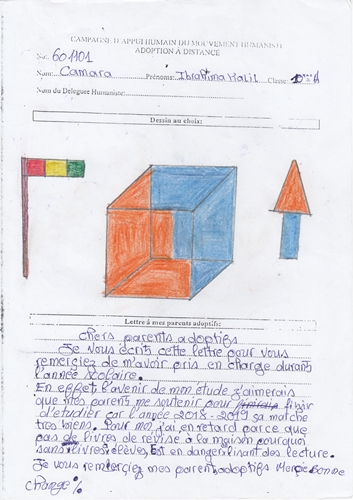 CAMPAGNE D'APPUI HUMAIN DU MOUVEMENT HUMANISTE
ADOPTION À DISTANCE
No: 601101
Nom: Camara Prénoms: Ibrahima Kalil Classe: 10
Nom du Deleguer Humaniste:
Dessin au choix:
Lettre à mes parents adoptifs:
chers parents adoptifs
Je vous écrits cette lettre pour vous
remerciez de m'avoir pris en charge durant
l'année scolaire.
En effet l'avenir de mon étude j'aimerais
que mes parent me soutenir pour finir
d'étudier car l'année 2018-2019 sa matche
tres biens. Pour moi j'ai en retard parce que
pas de livres de révise à la maison pourquoi
sans livres élèves Est en danger lisant des lecture.
Je vous remerciez mes parent adoptifs Merçie Bonne
change